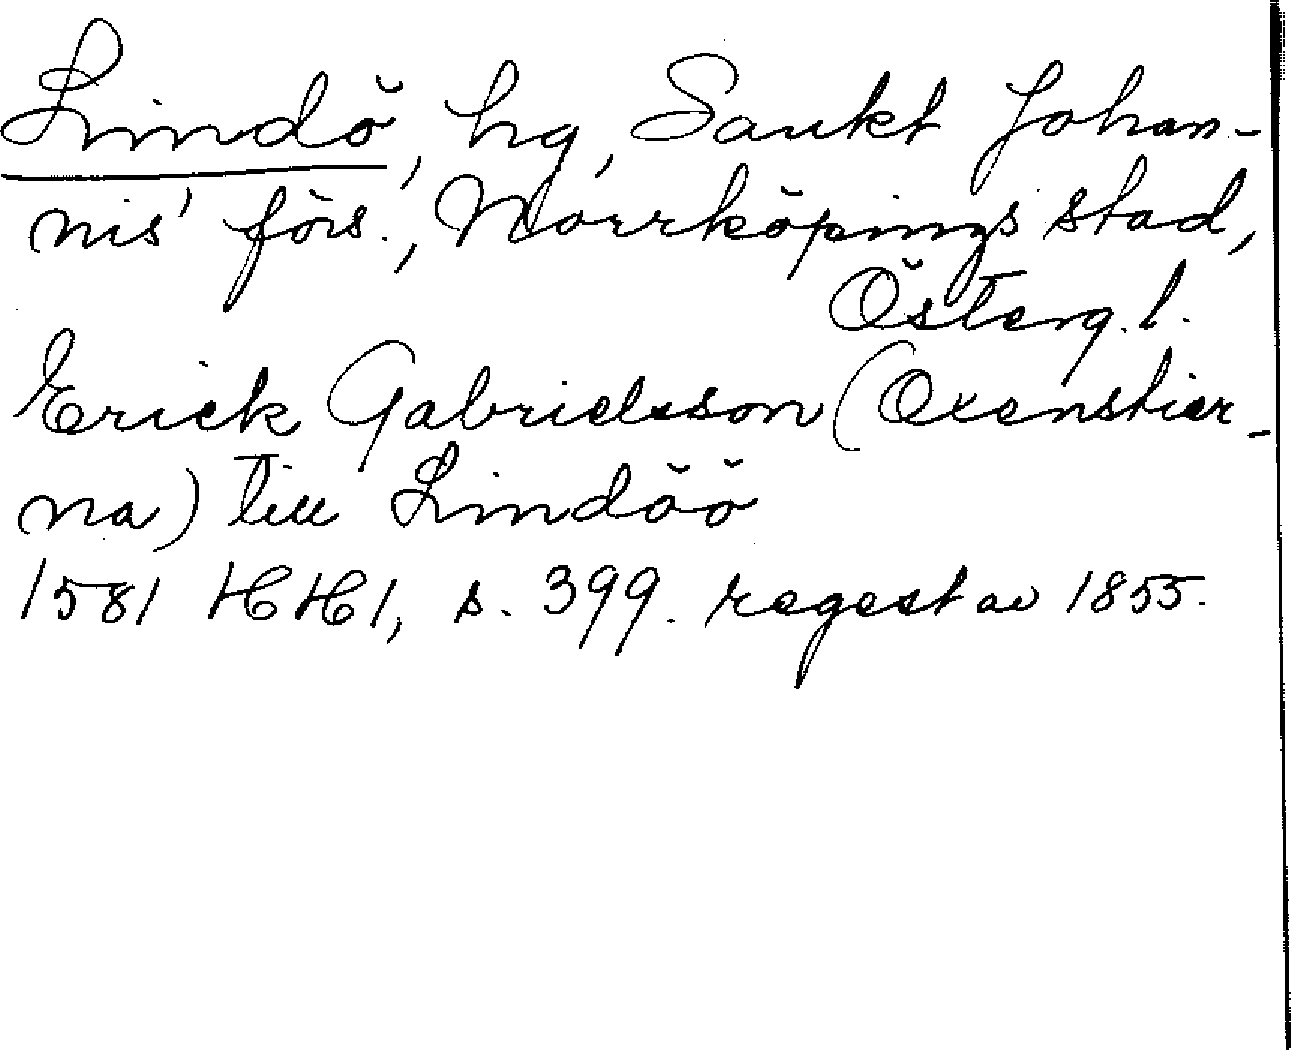 Lindö, hg, Sankt Johan-
nis' förs., Norrköpings stad,
Österg. l.
Erick Gabrielsson (Oxenstier-
na) till Lindöö
1581 HH1, s. 399. regest av 1855.